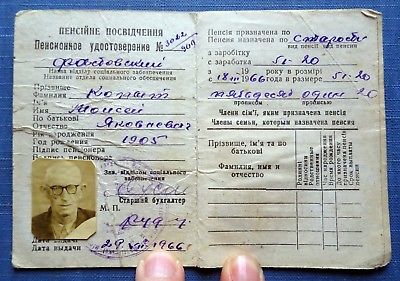 ПЕНСІЙНЕ ПОСВІДЧЕННЯ
Пенсионное удостоверение №
Фастовский
Назва відділу соціального забезпечення
Название отдела социального обеспечения
Прізвище
Фамилия
Ім'я
Имя Моисей
По батькові
Отчество Яковлевич
Рік народження
Год рождения 1905
Підпис пенсіонера
Зав. відділом соціального
забезпечення
Старший бухгалтер
М. П.
Дата видачі
Дата выдачи 29 1966
Пенсія призначена по
Пенсия назначена по старости
вид пенсії вид пенсии
з заробітку
с заработка 51-20
з 19 року в розмірі
с 18 1966 года в размере 51-20
пятьдесят один 20
прописом прописью
Члени сім'ї, яким призначена пенсія
Члены семьи, которым назначена пенсия
Прізвище, ім'я та по
батькові
Фамилия, имя и
отчество